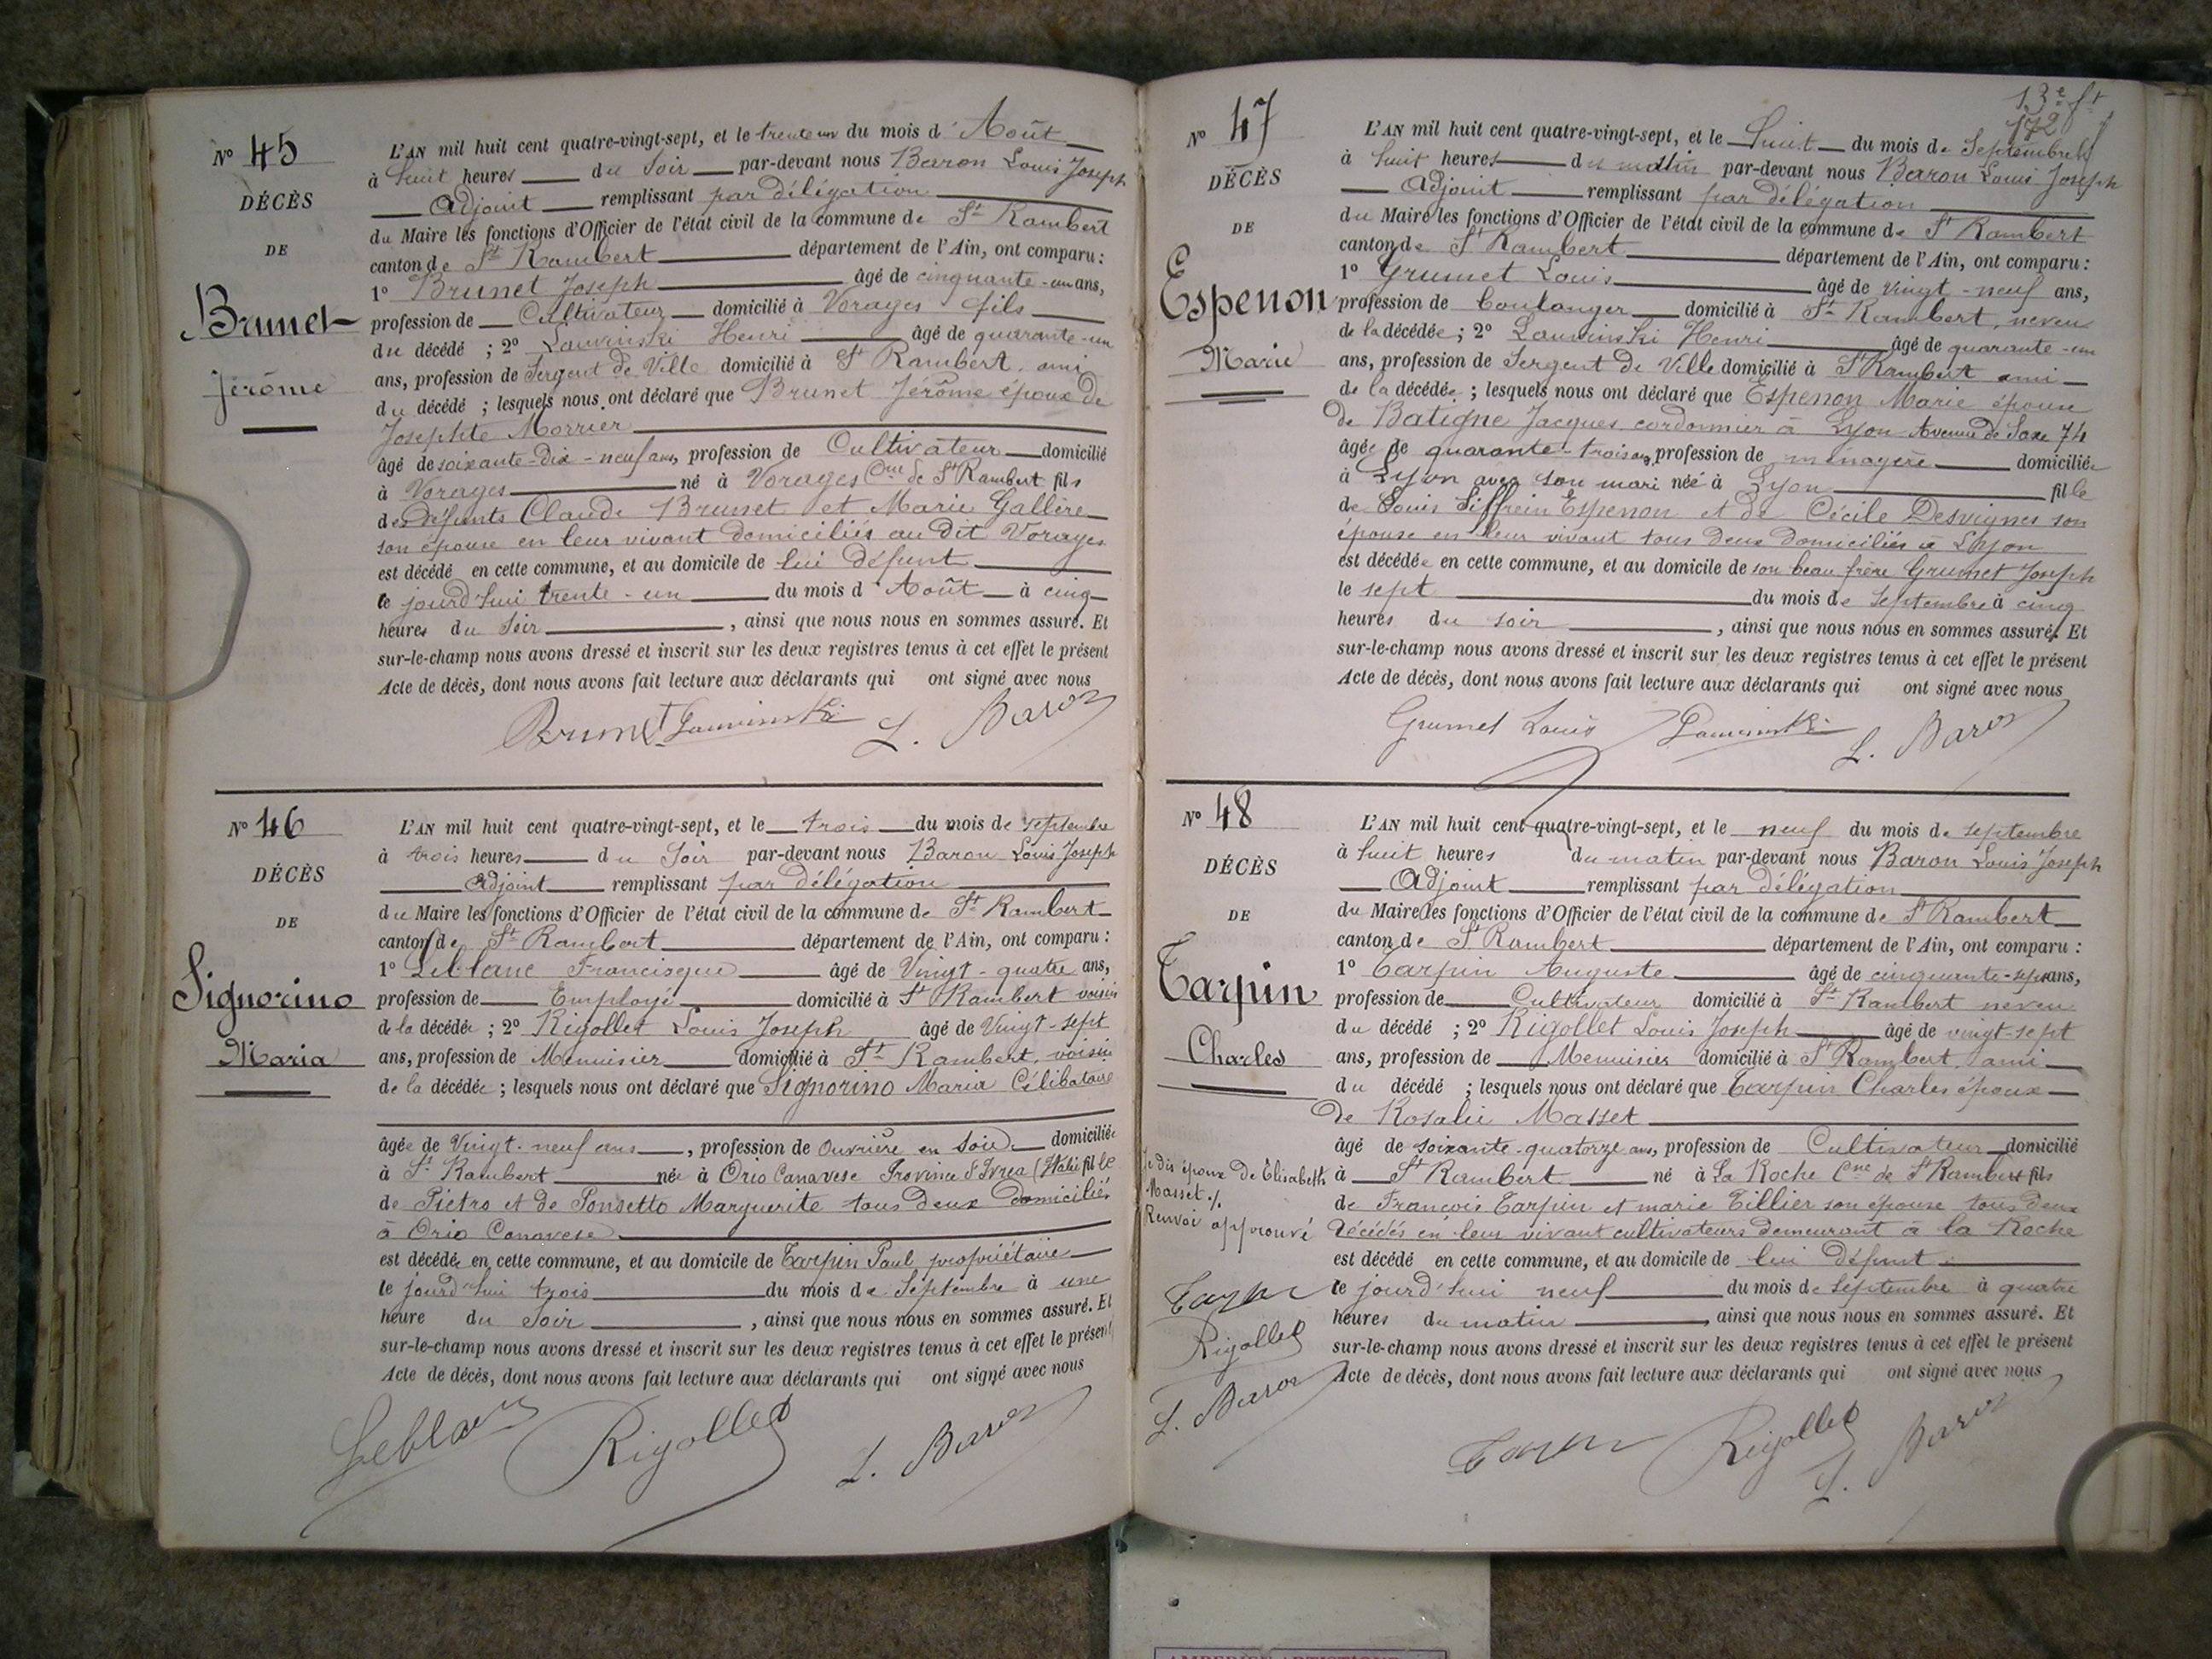 Nº 45
DÉCÈS
DE
Brunet
Jérôme
L'AN mil huit cent quatre-vingt-sept, et le trente un du mois d'Août
à huit heures du soir par-devant nous Baron Louis Joseph
Adjoint remplissant par délégation
du Maire les fonctions d'Officier de l'état civil de la commune de St Rambert
canton de St Rambert département de l'Ain, ont comparu :
1º Brunet Joseph âgé de cinquante-un ans,
profession de Cultivateur domicilié à Vorages fils
du décédé ; 2º Henri âgé de quarante-un
ans, profession de Sergent de Ville domicilié à St Rambert, ami
du décédé ; lesquels nous ont déclaré que Brunet Jérôme époux de
Josephte Morrier
âgé de soixante-dix-neuf ans, profession de Cultivateur domicilié
à Vorages né à Vorages Cne de St Rambert fils
des défunts Claude Brunet et Marie Gallère
son épouse en leur vivant domiciliés au dit Vorages
est décédé en cette commune, et au domicile de lui défunt
le jourd'hui trente-un du mois d'Août à cinq
heures du soir, ainsi que nous nous en sommes assuré. Et
sur-le-champ nous avons dressé et inscrit sur les deux registres tenus à cet effet le présent
Acte de décès, dont nous avons fait lecture aux déclarants qui ont signé avec nous
Brunet L. Baron
Nº 46
DÉCÈS
DE
Signorino
Maria
L'AN mil huit cent quatre-vingt-sept, et le trois du mois de septembre
à trois heures du soir par-devant nous Baron Louis Joseph
Adjoint remplissant par délégation
du Maire les fonctions d'Officier de l'état civil de la commune de St Rambert
canton de St Rambert département de l'Ain, ont comparu :
1º Leblanc Francisque âgé de Vingt-quatre ans,
profession de Employé domicilié à St Rambert voisin
de la décédée ; 2º Rigollet Louis Joseph âgé de Vingt-sept
ans, profession de Menuisier domicilié à St Rambert, voisin
de la décédée ; lesquels nous ont déclaré que Signorino Maria Célibataire
âgée de Vingt-neuf ans, profession de Ouvrière en soie domiciliée
à St Rambert née à Orio Canavese Province d'Ivrea (Italie) fille
de Pietro et de Ponsetto Marguerite tous deux domiciliés
à Orio Canavese
est décédée en cette commune, et au domicile de Tarpin Paul, propriétaire
le jourd'hui trois du mois de Septembre à une
heure du soir, ainsi que nous nous en sommes assuré. Et
sur-le-champ nous avons dressé et inscrit sur les deux registres tenus à cet effet le présent
Acte de décès, dont nous avons fait lecture aux déclarants qui ont signé avec nous
Leblanc Rigollet L. Baron
13e ft
172
Nº 47
DÉCÈS
DE
Espenon
Marie
L'AN mil huit cent quatre-vingt-sept, et le huit du mois de Septembre
à huit heures du matin par-devant nous Baron Louis Joseph
Adjoint remplissant par délégation
du Maire les fonctions d'Officier de l'état civil de la commune de St Rambert
canton de St Rambert département de l'Ain, ont comparu :
1º Grumet Louis âgé de vingt-neuf ans,
profession de boulanger domicilié à St Rambert, neveu
de la décédée ; 2º Henri âgé de quarante-un
ans, profession de Sergent de Ville domicilié à St Rambert ami
de la décédée ; lesquels nous ont déclaré que Espenon Marie épouse
de Batigne Jacques cordonnier à Lyon Avenue de Saxe 74
âgée de quarante-trois ans, profession de ménagère domiciliée
à Lyon avec son mari née à Lyon fille
de Louis Siffrein Espenon et de Cécile Desvignes son
épouse en leur vivant tous deux domiciliés à Lyon
est décédée en cette commune, et au domicile de son beau frère Grumet Joseph
le sept du mois de septembre à cinq
heures du soir, ainsi que nous nous en sommes assuré. Et
sur-le-champ nous avons dressé et inscrit sur les deux registres tenus à cet effet le présent
Acte de décès, dont nous avons fait lecture aux déclarants qui ont signé avec nous
Grumet Louis L. Baron
Nº 48
DÉCÈS
DE
Tarpin
Charles
L'AN mil huit cent quatre-vingt-sept, et le neuf du mois de septembre
à huit heures du matin par-devant nous Baron Louis Joseph
Adjoint remplissant par délégation
du Maire les fonctions d'Officier de l'état civil de la commune de St Rambert
canton de St Rambert département de l'Ain, ont comparu :
1º Tarpin Auguste âgé de cinquante-sept ans,
profession de Cultivateur domicilié à St Rambert neveu
du décédé ; 2º Rigollet Louis Joseph âgé de vingt-sept
ans, profession de Menuisier domicilié à St Rambert, ami
du décédé ; lesquels nous ont déclaré que Tarpin Charles époux
de Rosalie Masset
âgé de soixante-quatorze ans, profession de Cultivateur domicilié
à St Rambert né à La Roche Cne de St Rambert fils
de François Tarpin et marie Tillier son épouse tous deux
décédés en leur vivant cultivateurs demeurant à la Roche
est décédé en cette commune, et au domicile de lui défunt
le jourd'hui neuf du mois de septembre à quatre
heures du matin, ainsi que nous nous en sommes assuré. Et
sur-le-champ nous avons dressé et inscrit sur les deux registres tenus à cet effet le présent
Acte de décès, dont nous avons fait lecture aux déclarants qui ont signé avec nous
Tarpin Rigollet L. Baron
Je dis époux de Élisabeth
Masset ./.
Renvoi approuvé
Tarpin
Rigollet
L. Baron